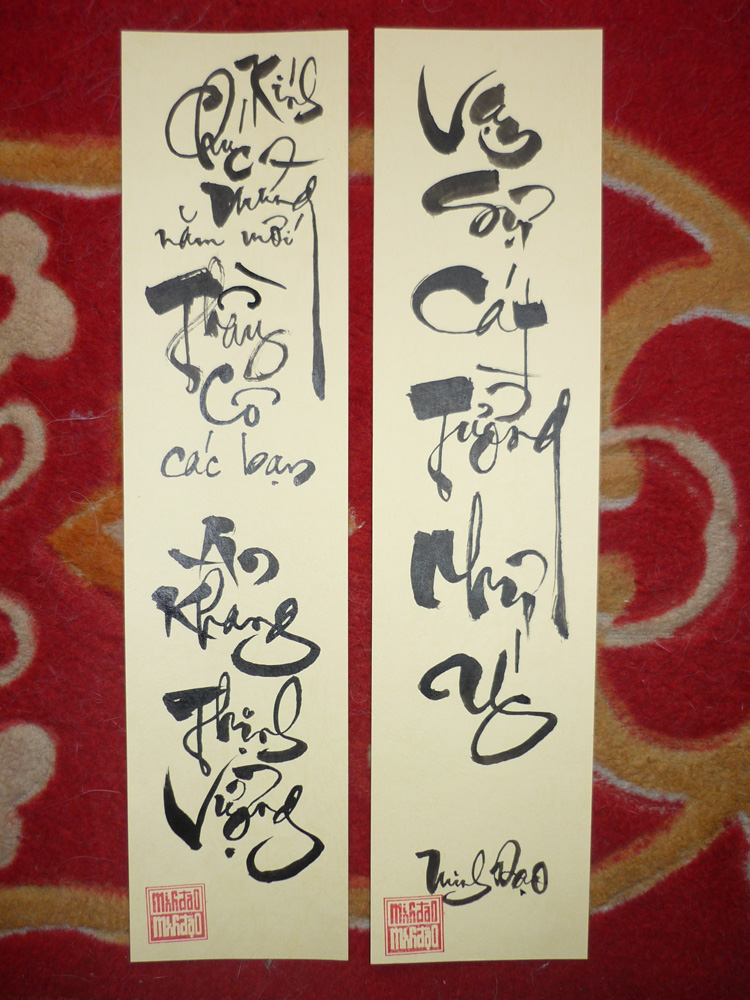 Kính
Chúc
Mừng
năm mới
Thầy
Cô
các bạn
An
Khang
Thịnh
Vượng
minhđạo
minhđạo
Vạn
Sự
Cát
Tường
Như
Ý
Minh Đạo
minhđạo
minhđạo